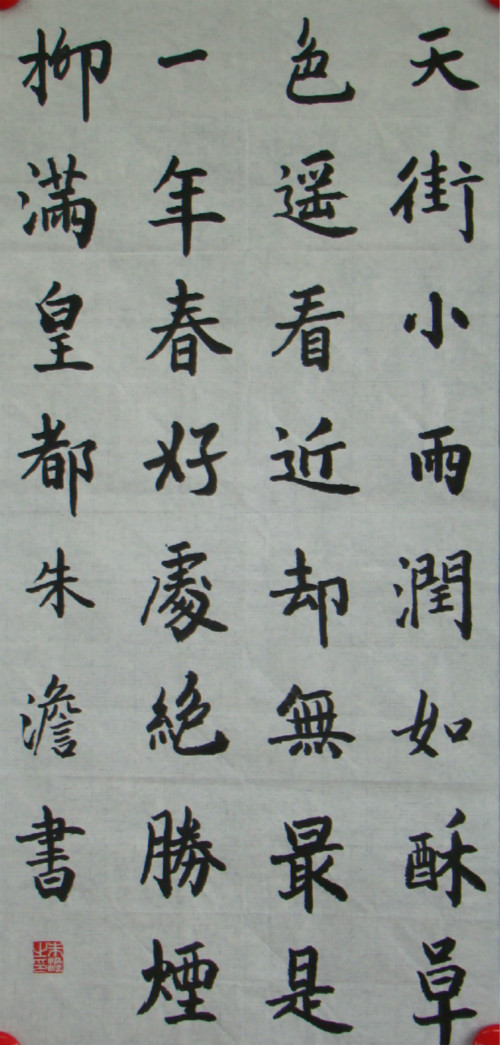 天街小雨潤如酥草
色遥看近却無最是
一年春好處絶勝煙
柳滿皇都朱澹書
朱澹之印